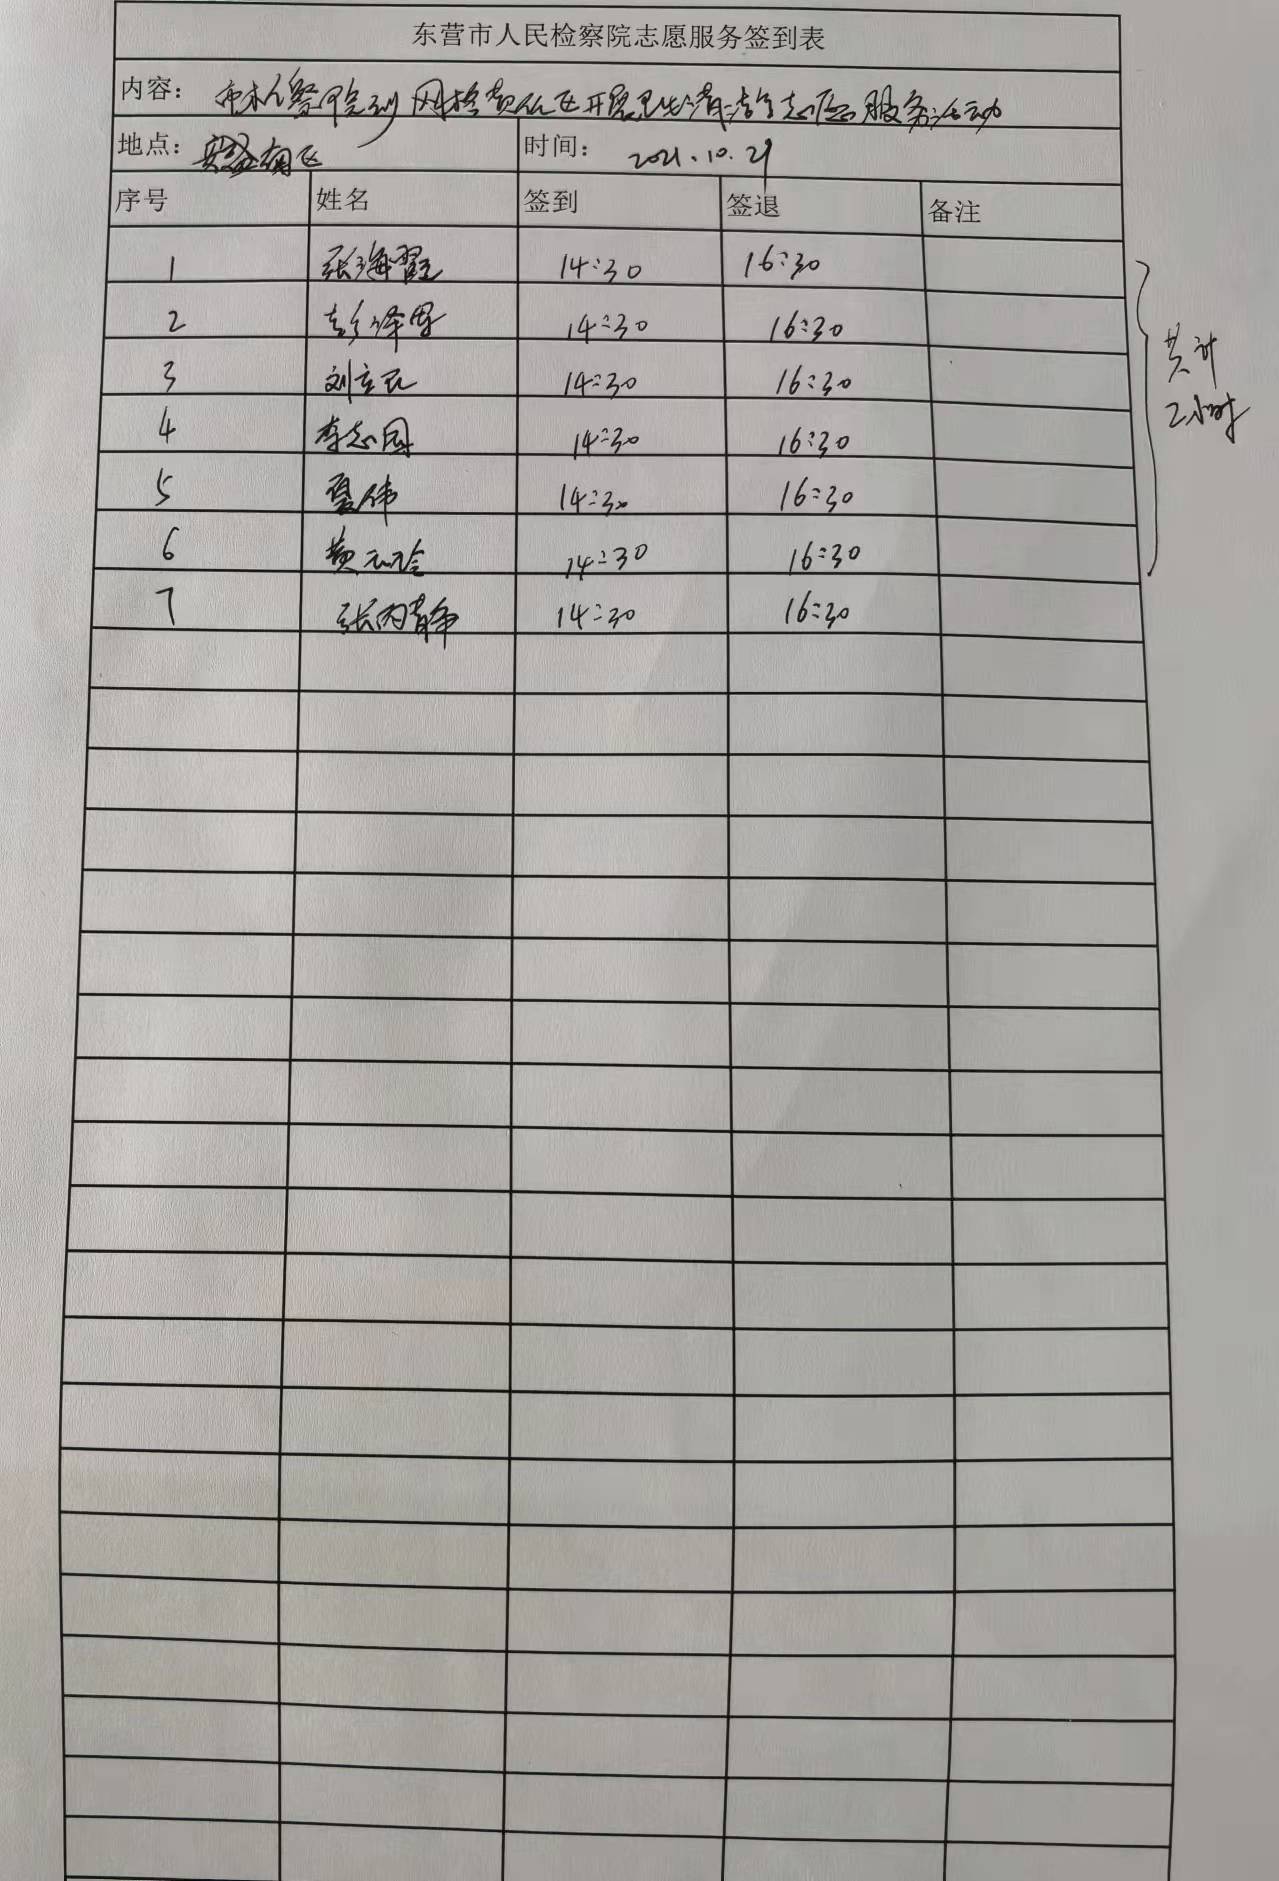 东营市人民检察院志愿服务签到表
内容：市检察院到网格责任区开展卫生清洁志愿服务活动
地点： 时间：2021.10.29
序号 姓名 签到 签退 备注
1 张海 14:30 16:30
2 彭泽 14:30 16:30
3 刘立民 14:30 16:30
4 李志国 14:30 16:30
5 夏伟 14:30 16:30
6 黄 14:30 16:30
7 张丙静 14:30 16:30
共计
2小时